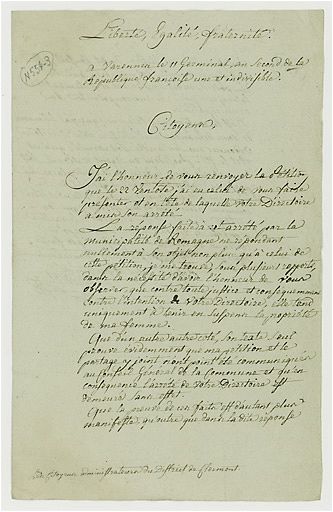 Liberté, Egalité, fraternité.
N 554-3
a Varennes le 11 Germinal, an Second de la
République françoise une et indivisible.
Citoyens,
J'ai l'honneur de vous renvoyer la Pétition
que le 22 Ventose j'ai eu celui de vous faire
présenter et en tête de laquelle votre Directoire
a mis son arrêté.
La réponse faite à cet arrêté par la
municipalité de Romagne ne répondant
nullement à son objet non plus qu'à celui de
cette pétition, je me trouve, sous plusieurs rapports,
dans la nécessité d'avoir l'honneur de vous
observer que contre toute justice et conséquemment
contre l'intention de votre Directoire, elle tend
uniquement à tenir en suspens la propriété
de ma femme.
Que d'un autre côté, son seul
prouve évidemment que ma petition et le
partage y joint n'ont point été communiqués
au Conseil Général de la Commune et qu'en
conséquence l'arrêté de votre Directoire est
demeuré sans effet.
Que la preuve de ce faite est d'autant plus
manifeste, qu'outre que dans la dite réponse
Citoyens administrateurs du District de Clermont